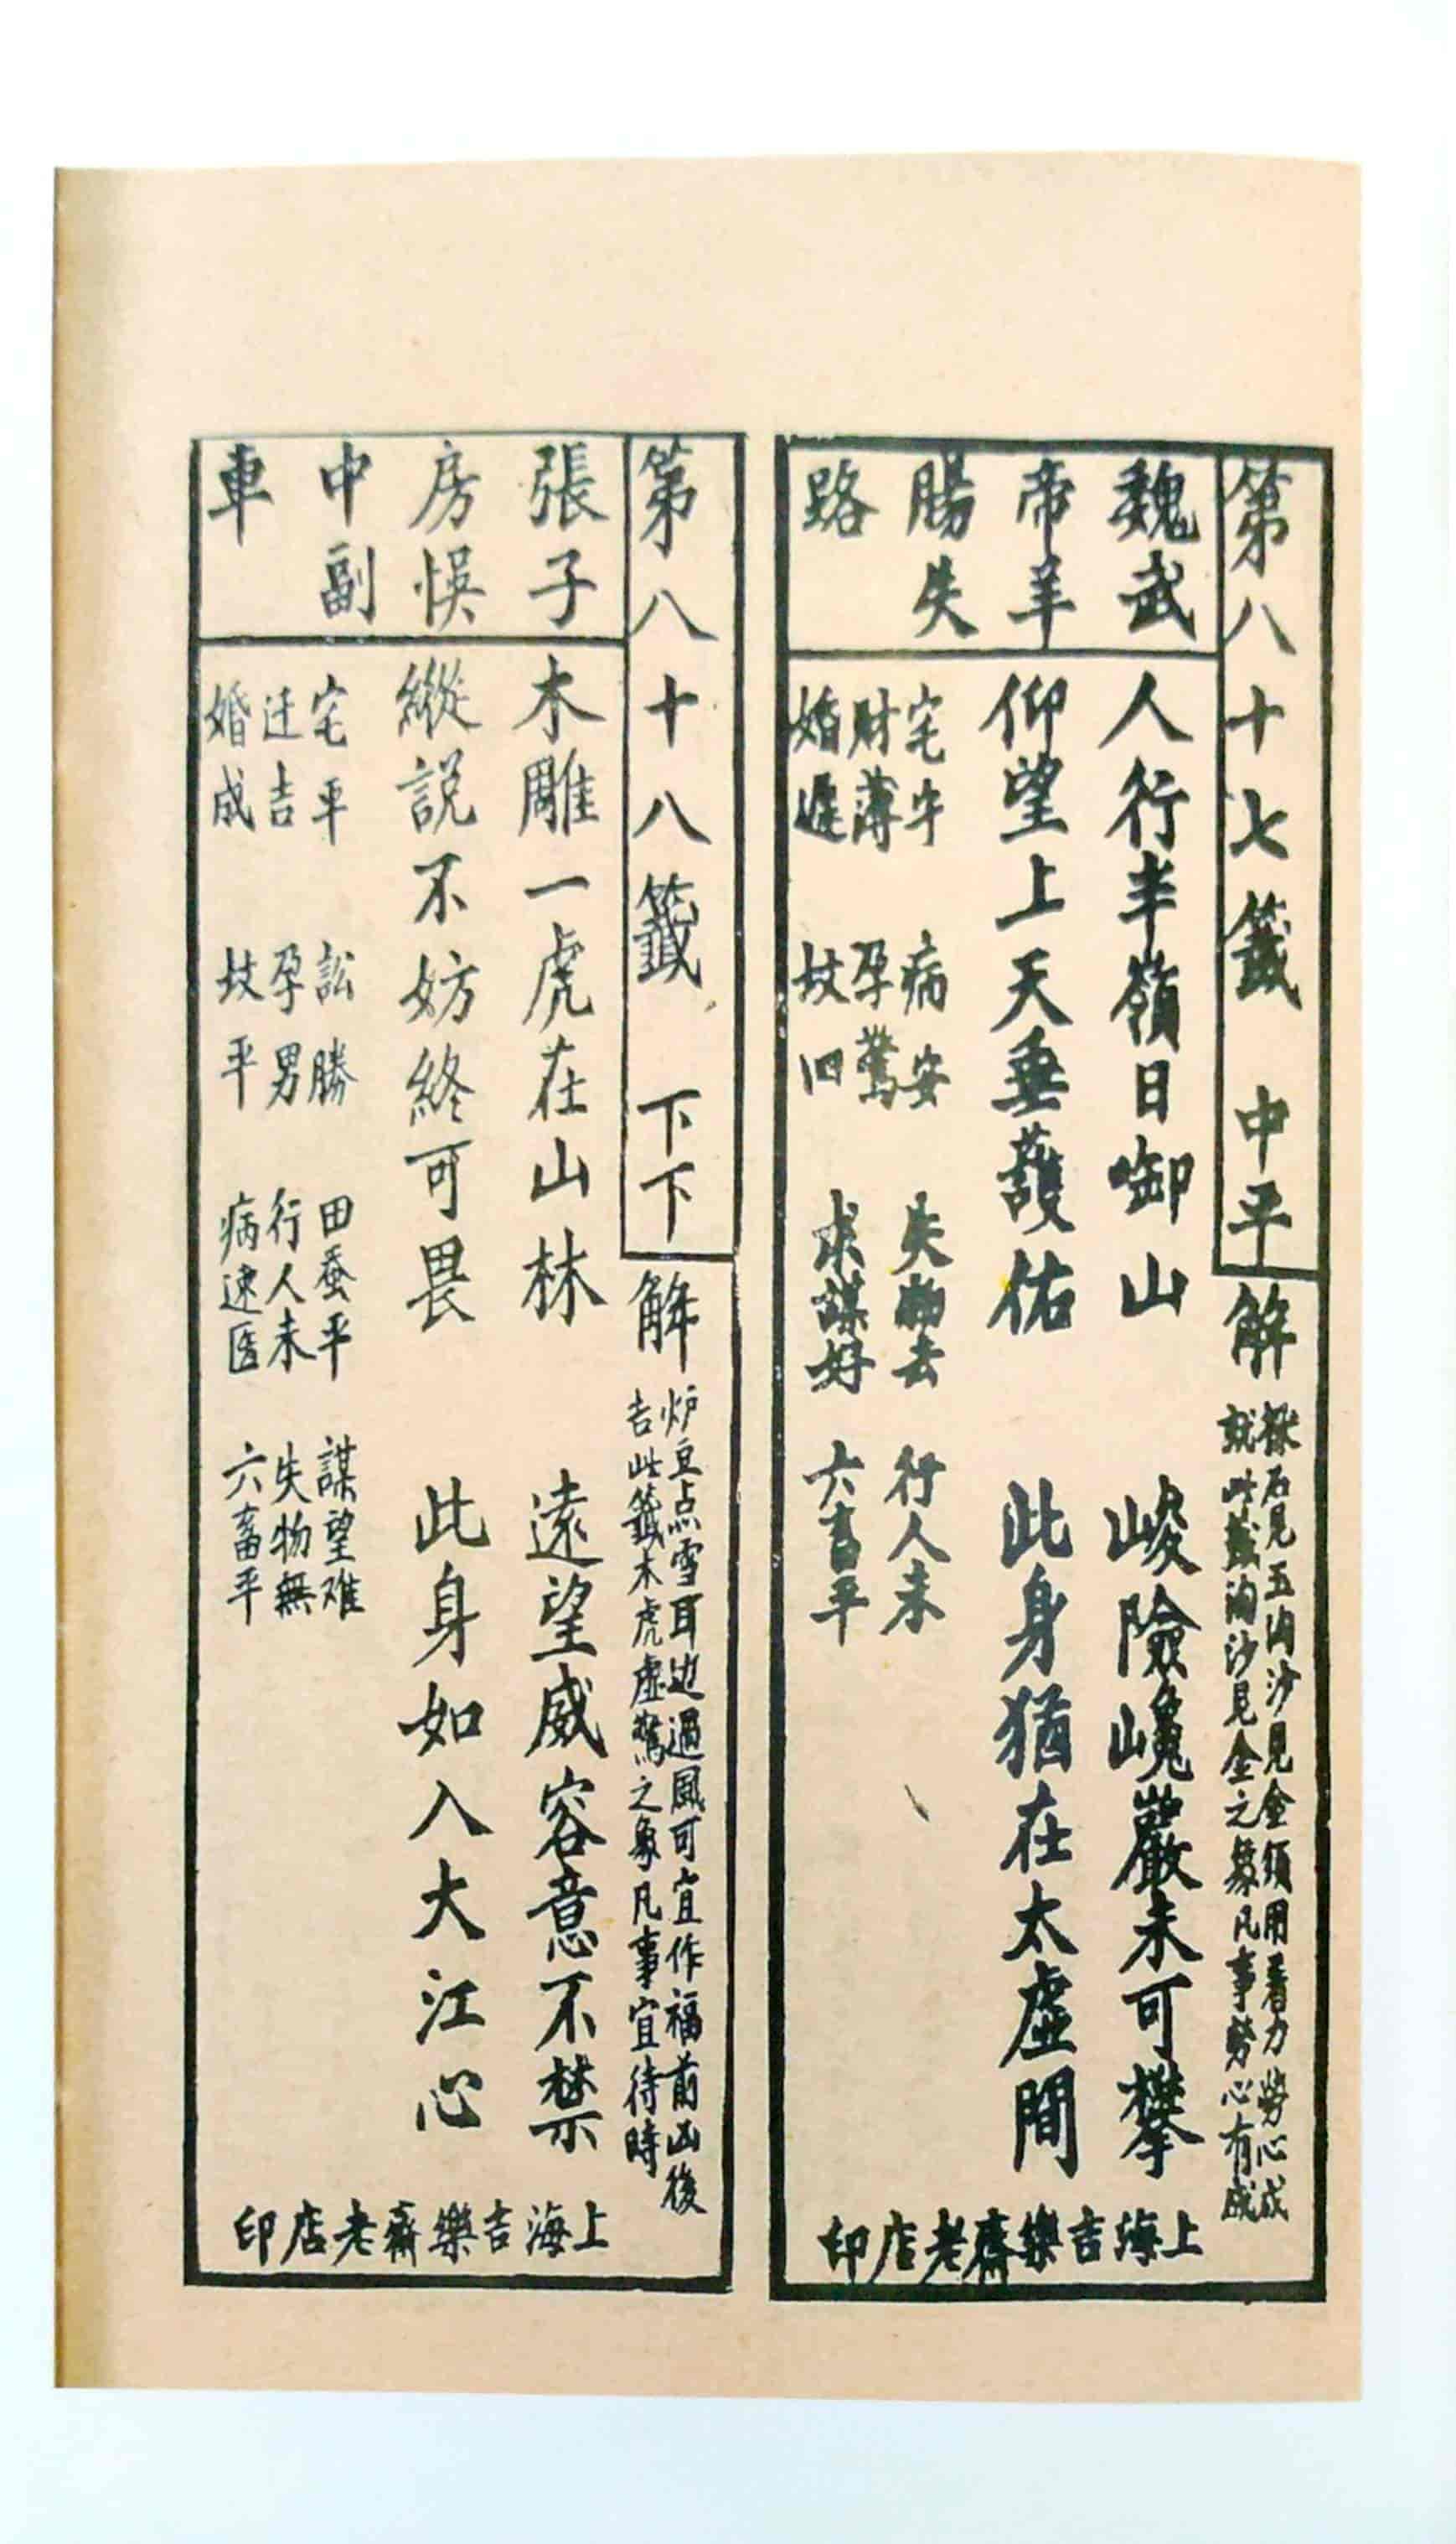 第八十七籤 中平
解
採石見玉淘沙見金須用着力勞心成
就此籤淘沙見金之象凡事勞心有成
魏武
帝羊
腸失
路
人行半嶺日啣山 峻險巉巖未可攀
仰望上天垂護佑 此身猶在太虛間
宅守 病安 失物去 行人未
財薄 孕驚 求謀好 六畜平
婚遲 坟凶
上海吉樂齋老店印
第八十八籤 下下
解
炉豆点雪耳边過風可宜作福前凶後
吉此籤木虎虛驚之象凡事宜待時
張子
房悞
中副
車
木雕一虎在山林 遠望威容意不禁
縱說不妨終可畏 此身如入大江心
宅平 訟勝 田蚕平 謀望难
迁吉 孕男 行人未 失物無
婚成 坟平 病速医 六畜平
上海吉樂齋老店印